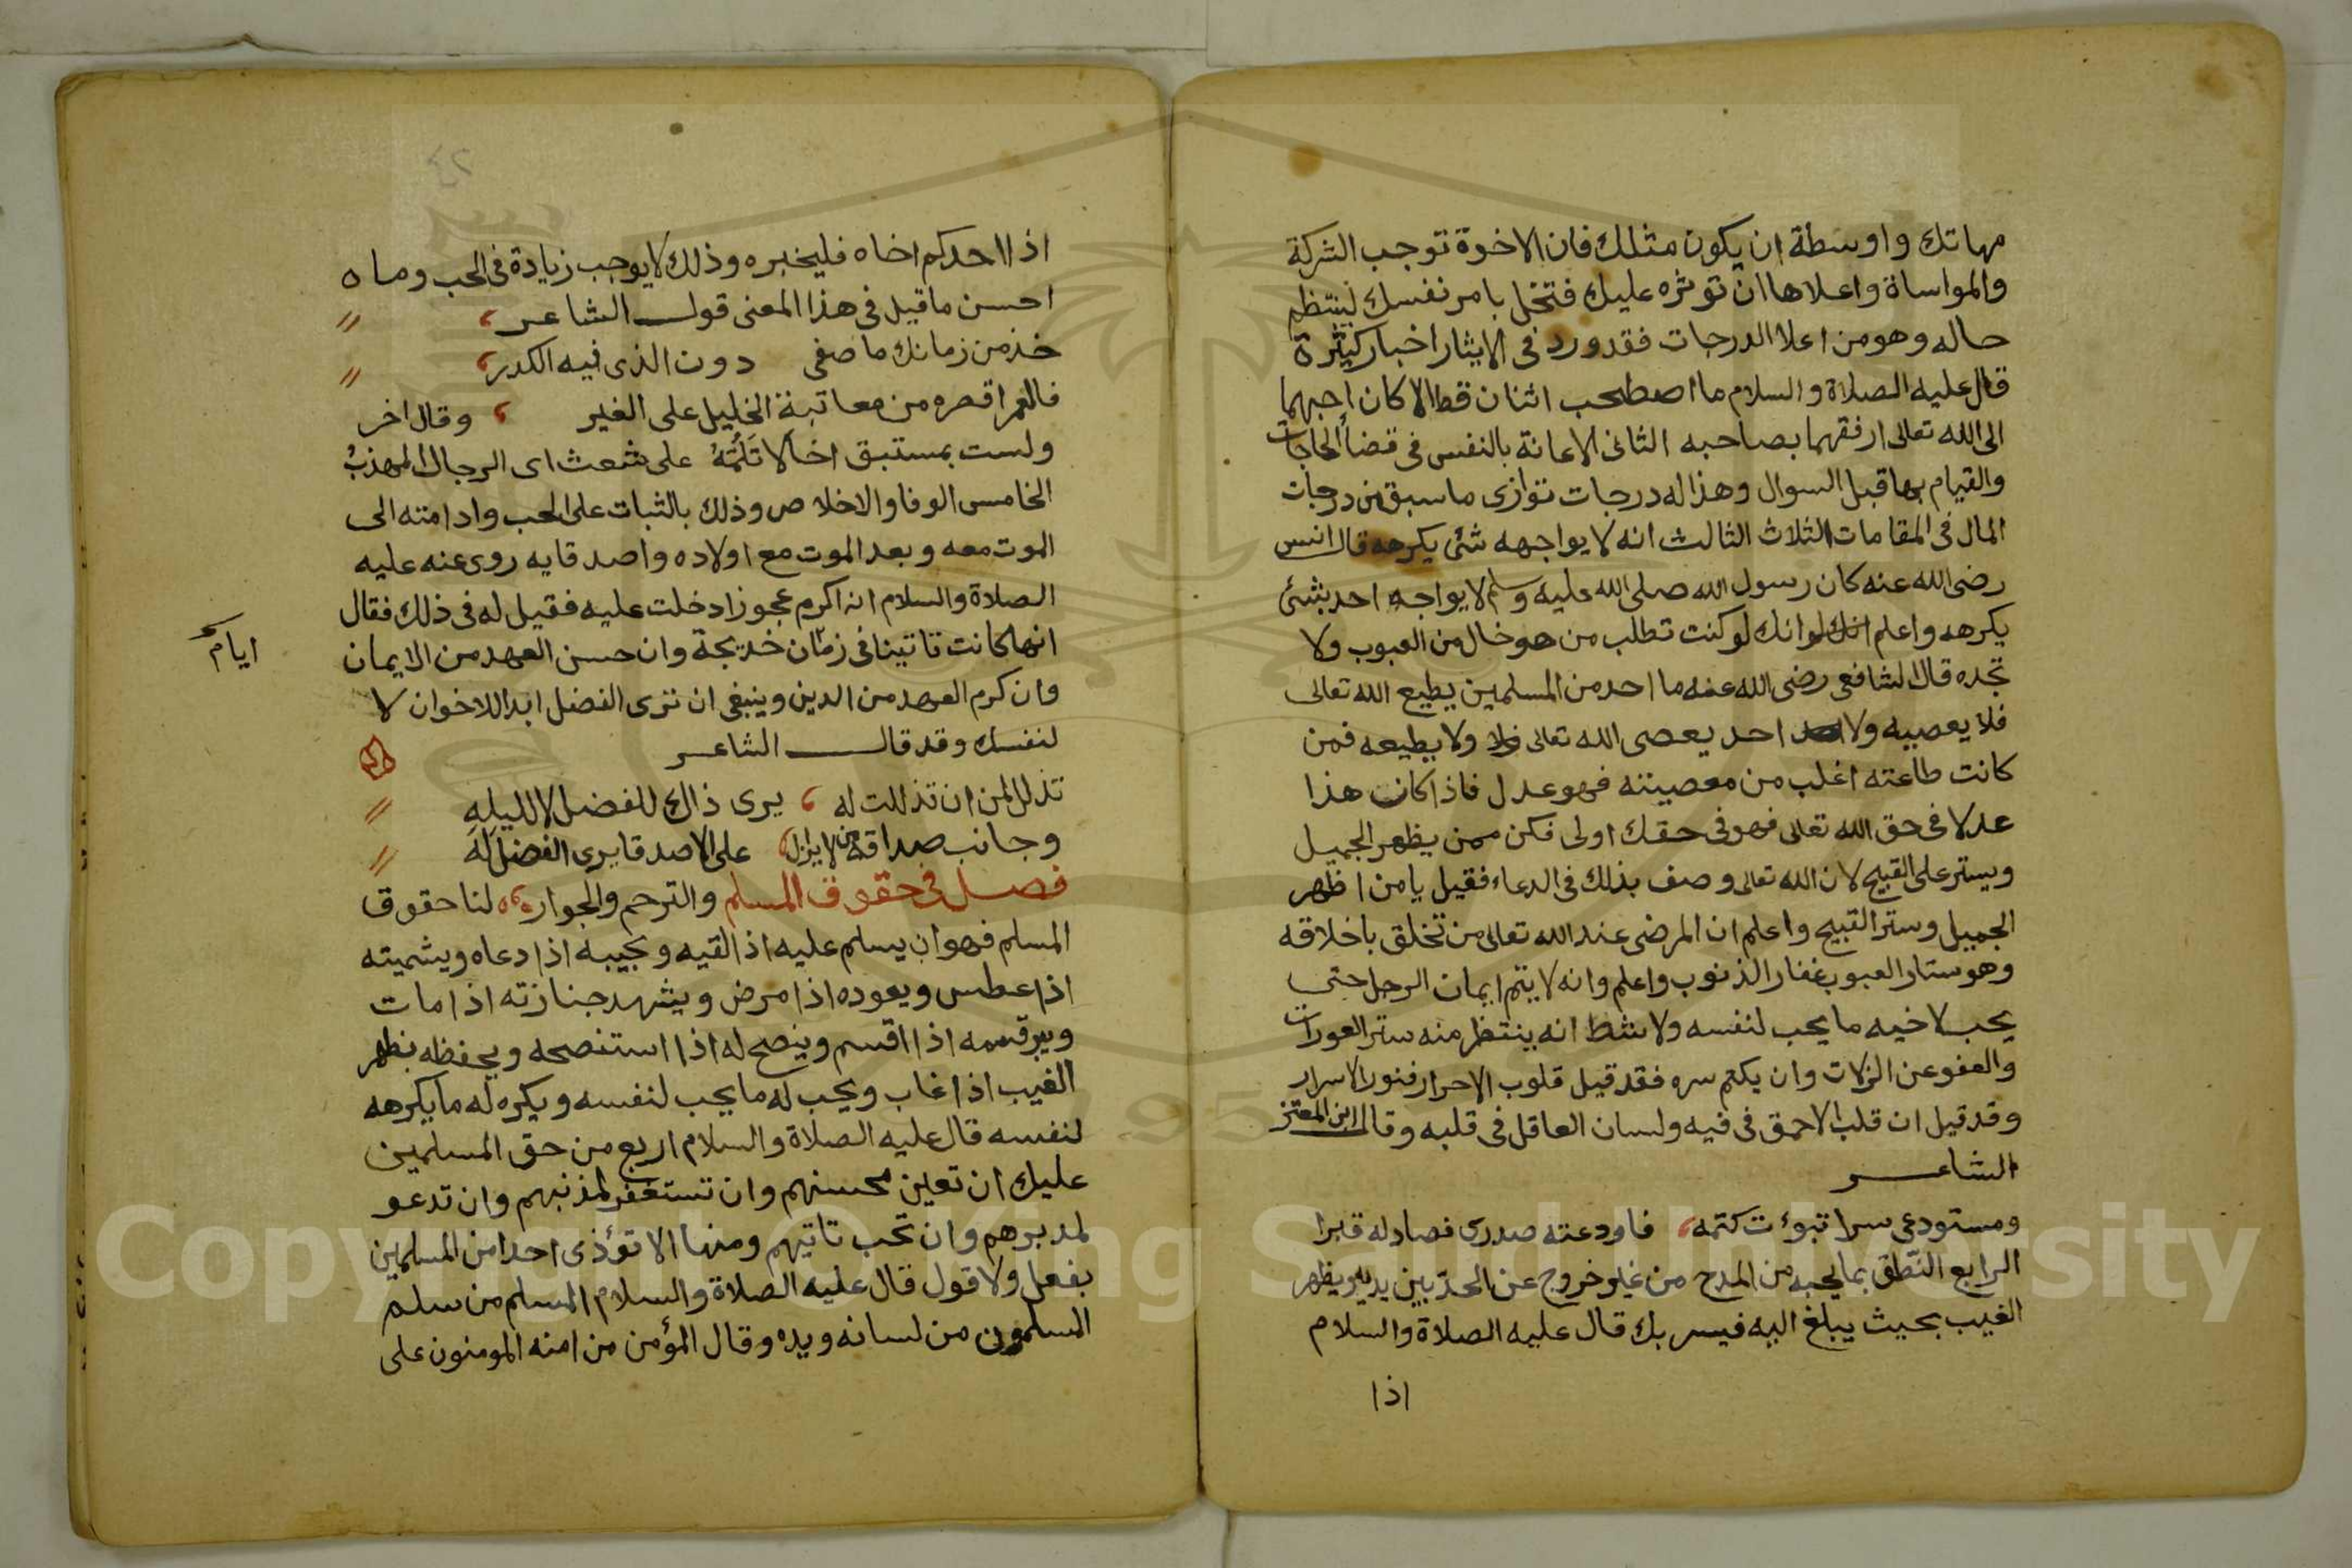 مهاتك واوسطة ان يكون مثلك فان الاخوة توجب الشركة
والمواساة واعلاها ان توثره عليك فتخل بامر نفسك لينتظم
حاله وهو من اعلا الدرجات فقد ورد فى الايثار اخبار كثيرة
قال عليه الصلاة والسلام ما اصطحب اثنان قط الا كان احبهما
الى الله تعالى ارفقهما بصاحبه الثانى الاعانة بالنفس فى قضأ الحاجات
والقيام بها قبل السوال وهذا له درجات توازى ما سبق من درجات
المال فى المقامات الثلاث الثالث انه لا يواجهه شئ يكرهه قال انس
رضى الله عنه كان رسول الله صلى الله عليه وسلم لا يواجه احد بشئ
يكرهه واعلم انك لوانك لو كنت تطلب من هو خال من العيوب ولا
تجده قال الشافعى رضى الله عنه ما احد من المسلمين يطيع الله تعالى
فلا يعصيه ولا احد يعصى الله تعالى ولا يطيعه فمن
كانت طاعته اغلب من معصيتنه فهو عدل فاذا كان هذا
عدلا فى حق الله تعالى فهو فى حقك اولى فكن ممن يظهر الجميل
ويستر على القبيح لان الله تعالى وصف بذلك فى الدعاء فقيل يا من اظهر
الجميل وستر القبيح واعلم ان المرضى عند الله تعالى من تخلق باخلاقه
وهو ستار العيوب غفار الذنوب واعلم وانه لا يتم ايمان الرجل حتى
يحب لاخيه ما يحب لنفسه ولا شط انه ينتظر منه ستر العورات
والعفو عن الزلات وان يكتم سره فقد قيل قلوب الاحرار فنور الاسرار
وقد قيل ان قلب الاحمق فى فيه ولسان العاقل فى قلبه وقال ابن المعتز
الشاعر
ومستودعى سرا تبوءت كتمه، فاودعته صدرى فصاد له قبرا
الرابع النطق بما يحبه من المدح من غير خروج عن الحد بين يديه ويظهر
الغيب بحيث يبلغ اليه فيسر بك قال عليه الصلاة والسلام
اذا
٤٢
اذا احدكم اخاه فليخبره وذلك لا يوجب زيادة فى الحب وما ه
احسن ما قيل فى هذا المعنى قول الشاعر،
خذ من زمانك ما صفى دون الذى فيه الكدر،
فالعمر اقصره من معاتبة الخليل على الغير ، وقال اخر
ولست بمستبق اخا لا تلمه على شعث اى الرجال المهذب
الخامس الوفا والاخلاص وذلك بالثبات على الحب وادامته الى
الموت معه وبعد الموت مع اولاده واصدقايه روى عنه عليه
الصلاة والسلام انه اكرم عجوزا دخلت عليه فقيل له فى ذلك فقال
انها كانت تاتينا فى زمان خديجة وان حسن العهد من الايمان
ايام
وان كرم العهد من الدين وينبغى ان ترى الفضل ابدا للاخوان لا
لنفسك وقد قال الشاعر
تذلل لمن ان تذللت له ، يرى ذاك للفضل لا لليله
وجانب صداقة من لا يزل، على الاصدقا يرى الفضل له
فصل فى حقوق المسلم والترحم والجوار، لنا حقوق
المسلم فهو ان يسلم عليه اذا لقيه ويجيبه اذا دعاه ويشميته
اذا عطس ويعوده اذا مرض ويشهد جنازته اذا مات
ويبر قسمه اذا اقسم وينصح له اذا استنصحه ويحفظه بظهر
الغيب اذا غاب ويحب له ما يحب لنفسه ويكره له ما يكرهه
لنفسه قال عليه الصلاة والسلام اربع من حق المسلمين
عليك ان تعين محسنهم وان تستغفر لمذنبهم وان تدعو
لمدبرهم وان تحب تاتيهم ومنها الا تؤذى احدا من المسلمين
بفعل ولا قول قال عليه الصلاة والسلام المسلم من سلم
المسلمون من لسانه ويده وقال المؤمن من امنه المومنون على
Copyright © King Saud University